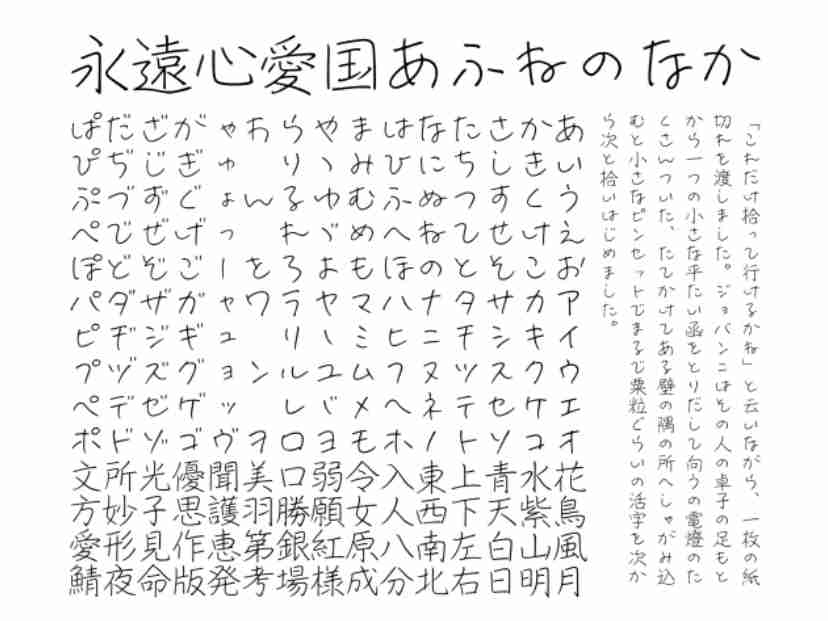 永遠心愛国あふねのなか
「これだけ拾って行けるかね」と云いながら、一枚の紙
切れを渡しました。ジョバンニはその人の卓子の足もと
から一つの小さな平たい函をとりだして向うの電燈のた
くさんついた、たてかけてある壁の隅の所へしゃがみ込
むと小さなピンセットでまるで粟粒ぐらいの活字を次か
ら次と拾いはじめました。
あいうえおアイウエオ花鳥風月
かきくけこカキクケコ水紫山明
さしすせそサシスセソ青天白日
たちつてとタチツテト上下左右
なにぬねのナニヌネノ東西南北
はひふへほハヒフヘホ入人八分
まみむめもマミムメモ令女原成
やゝゆゞよヤヽユヾヨ弱願紅様
らりるれろラリルレロ口勝銀場
わんをワンヲ美羽第考
ゃゅょっーャュョッヴ聞護恵発
がぎぐげごガギグゲゴ優思作版
ざじずぜぞザジズゼゾ光子見命
だぢづでどダヂヅデド所妙形夜
ぱぴぷぺぽパピプペポ文方愛鯖